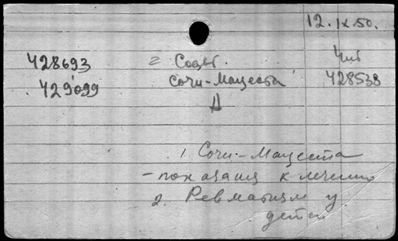 12.IX.50.
428693 г. Содет. Чит
429099 Сочи-Мацеста 428538
Д
1. Сочи-Мацеста
- показания к лечению
2. Ревматизм у
детей